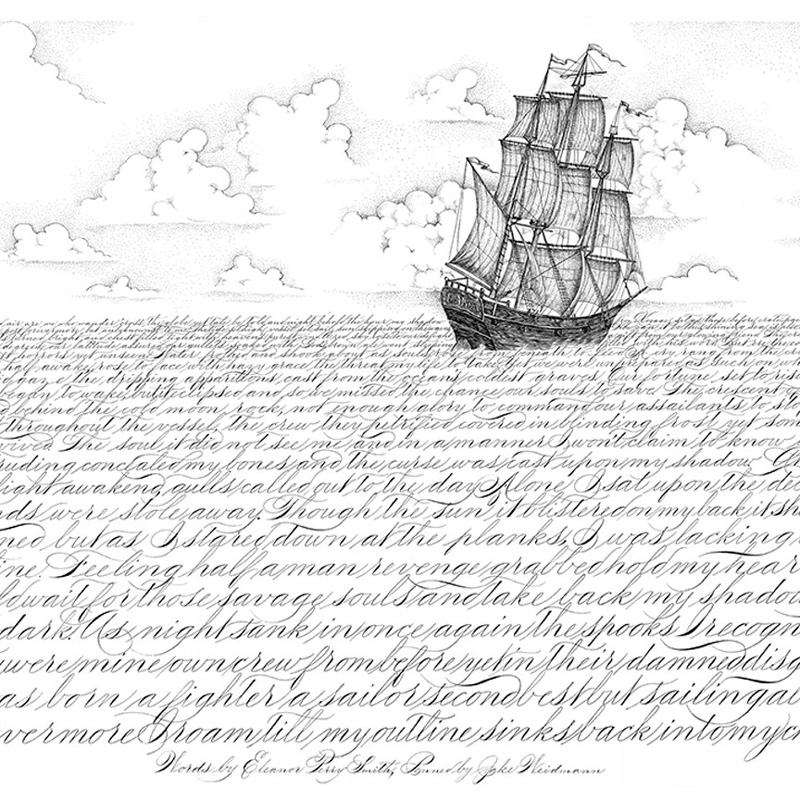 horrors yet unseen. Water frothed and shook about as souls rose from beneath to feed. A cry rang from the cro
half awake, rose to face with hazy grace the threat my life to take. Yet we were unprepared as such on
d gaze the dripping apparitions cast from the oceans coldest graves. Our fortune set to rise
began to wake, but it eclipsed and so we missed the chance our souls to save. The crescent
d behind the cold moon rock, not enough glory to command our assailants to sto
throughout the vessel, the crew they petrified covered in blinding frost yet som
ived. The soul it did not see me and in a manner I won't claim to know
ruding concealed my bones and the curse was cast upon my shadow.
light awakening, gulls called out to the day. Alone I sat upon the dec
nds were stole away. Though the sun it blistered on my back it sh
ned but as I stared down at the planks, I was lacking
ine. Feeling half a man revenge grabbed hold my hear
ld wait for those savage souls and take back my shadow
dark. As night sank in once again the spooks I recogn
were mine own crew from before yet in their damned disg
as born a fighter a sailor second best but sailing al
vermore I roam till my outline sinks back into my ch
Words by Eleanor Perry Smith, Penned by Jake Weidmann